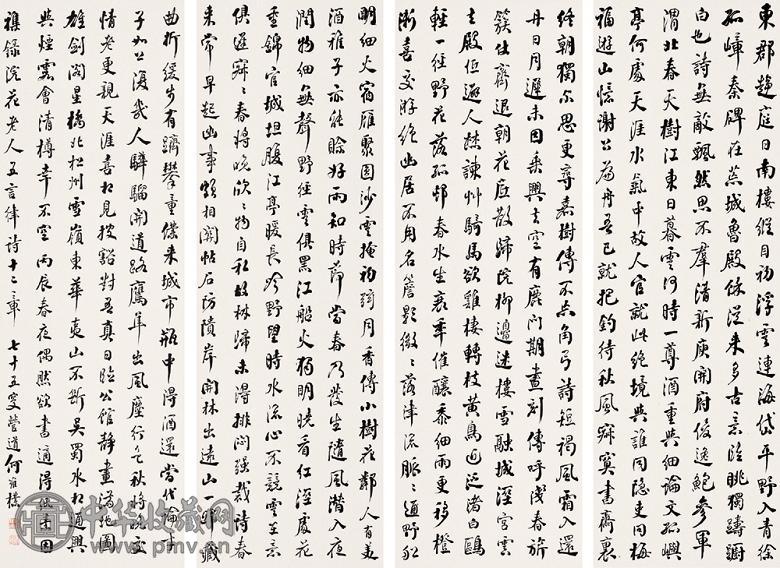 東郡趨庭日南樓縱目初浮雲連海岱平野入青徐
孤嶂秦碑在荒城魯殿餘從來多古意臨眺獨躊躇
白也詩無敵飄然思不羣清新庾開府俊逸鮑參軍
渭北春天樹江東日暮雲何時一尊酒重與細論文孤嶼
亭何處天涯水氣中故人官就此絕境與誰同隱吏同梅
福遊山憶謝公扁舟吾已就把釣待秋風寂寞書齋裏
終朝獨爾思更尋嘉樹傳不忘角弓詩短褐風霜入還
丹日月遲未因乘興去空有鹿門期畫刻傳呼淺春旂
簇仗齊退朝花底散歸院柳邊迷樓雪融城溼宮雲
去殿低避人焚諫艸騎馬欲雞棲轉枝黃鳥近泛渚白鷗
輕一徑野花落孤邨春水生衰年催釀黍細雨更移橙
漸喜交游絕幽居不用名簷影微々落津流脈々斜野船
明細火宿雁聚圓沙雲掩初弦月香傳小樹花鄰人有美
酒稚子亦能賒好雨知時節當春乃發生隨風潛入夜
潤物細無聲野徑雲俱黑江船火獨明曉看紅溼處花
重錦官城坦腹江亭暖長吟野望時水流心不競雲在意
俱遲寂々春將晚欣々物自私故林歸未得排悶強裁詩春
來常早起幽事頗相關帖石防隤岸開林出遠山一邱藏
曲折緩步有躋攀童僕來城市瓶中得酒還當代論才
子如公復幾人驊騮開道路鷹隼出風塵行色秋將晚交
情老更親天涯喜相見披豁對吾真日臨公館靜畫滿地圖
雄劍閣星橋北松州雪嶺東華夷山不斷吳蜀水相通興
與煙霞會清樽幸不空丙辰春夜偶然欲書適得佳素因
襍錄浣花老人五言律詩十二章 七十五叟營道何維樸
中华收藏网
www.pmv.cn